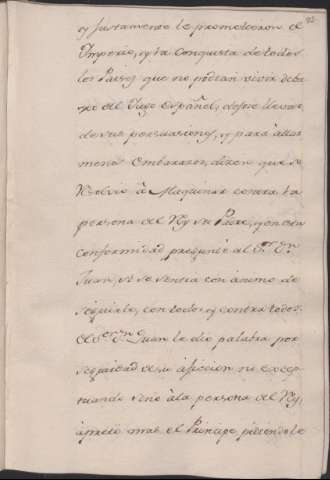 y juntamente le prometieron el
Imperio, y la Conquista de todos
los Paises que no podian vivir deba
xo del Yugo Español, dejose llevar
de sus persuasiones, y para allar
menos embarazos, dizen que se
resolvio à Maquinar contra la
persona del Rey su Padre, y en esta
conformidad preguntò al Sr. Dn.
Juan, si se sentia con animo de
seguirle, con todos, y contra todos,
el Sr. Dn. Juan le dio palabra por
seguridad de su aficcion no excep
tuando sino à la persona del Rey,
apretò mas el Principe pidiendole